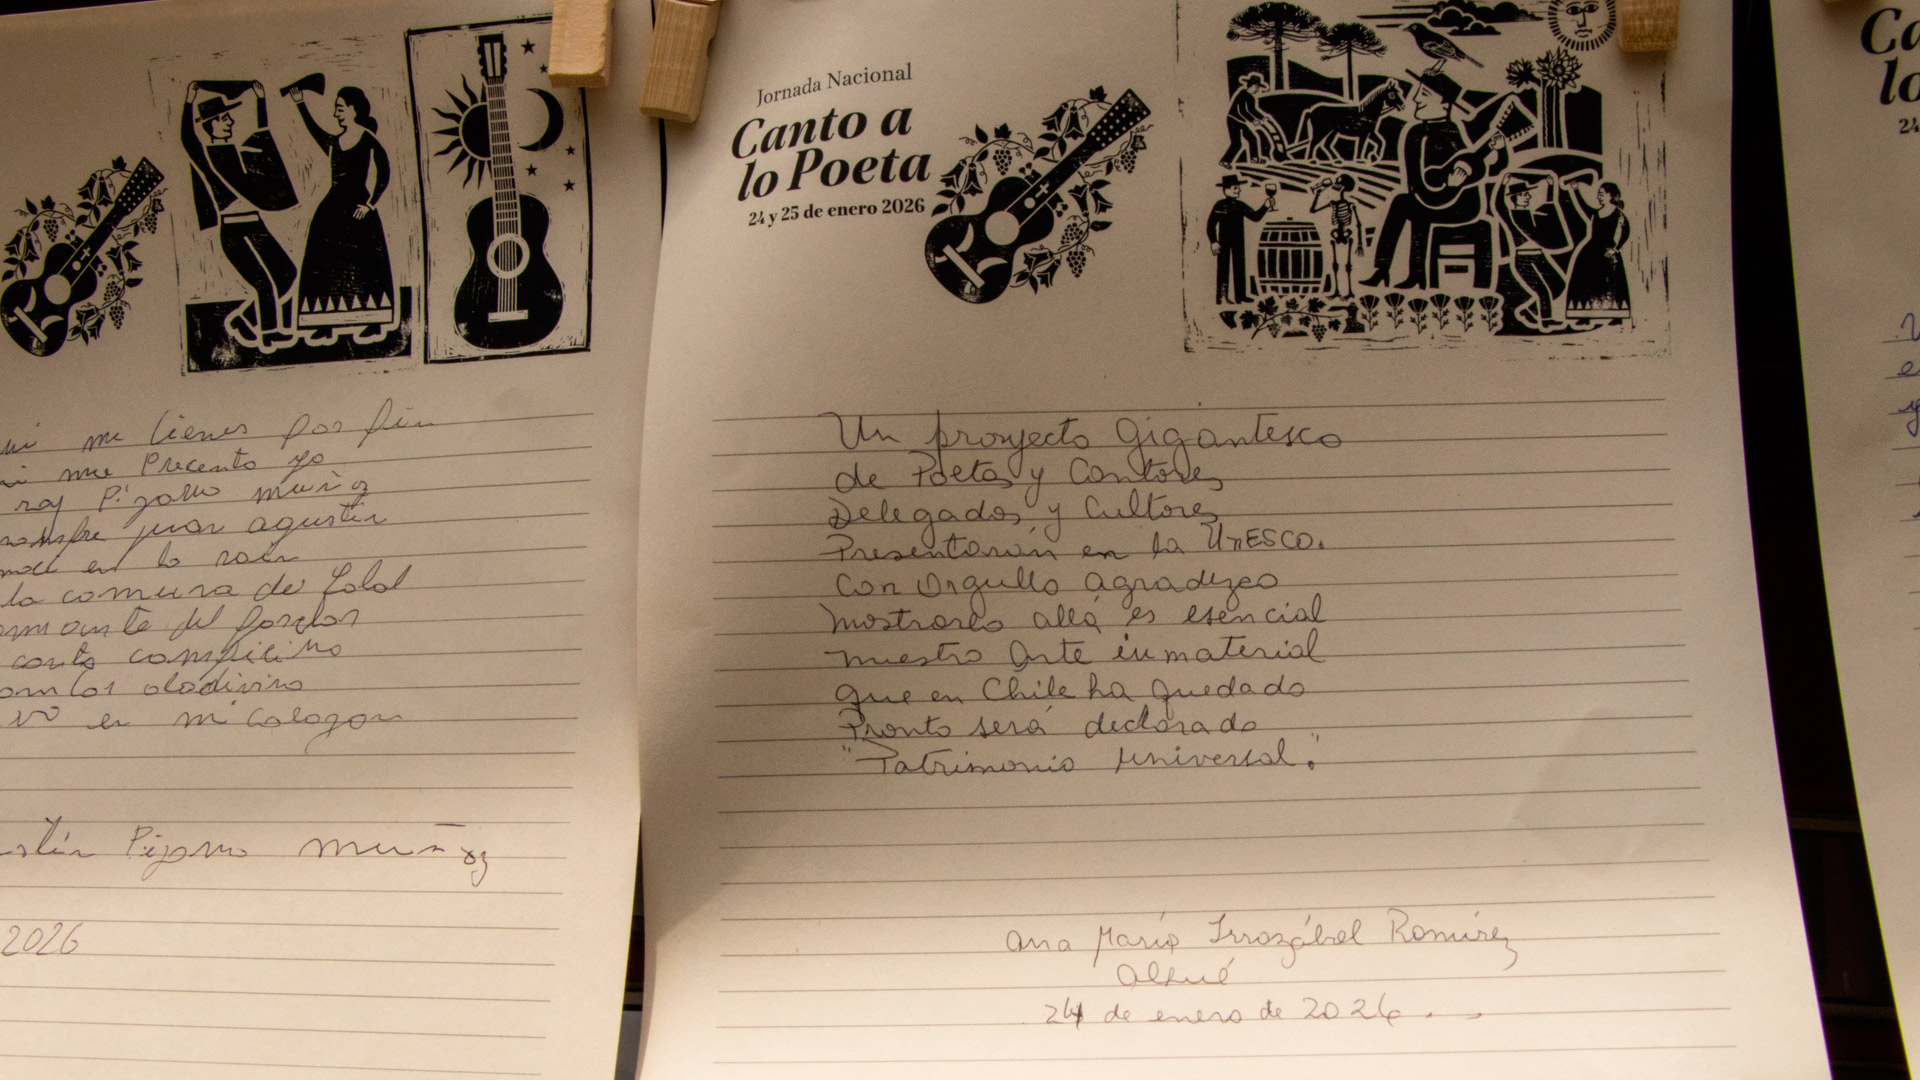 mi me tienes por fin
me Precento yo
roy Pizarro muñoz
juan agustin
en lo
la comuna de Lolol
del
canto campecino

en mi
Pizarro muñoz
2026
Jornada Nacional
Canto a
lo Poeta
24 y 25 de enero 2026
Un proyecto Gigantesco
de Poetas y Cantores
Delegados y Cultores
Presentarán en la UnESCO.
Con Orgullo agradezco
mostrarlo allá es esencial
nuestro Arte inmaterial
que en Chile ha quedado
Pronto será declarado
"Patrimonio universal."
Ana María Irrazábal Ramírez
Alhué
24 de enero de 2026
Ca
lo
24